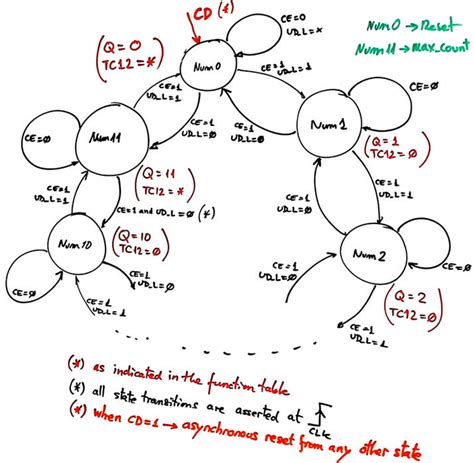 CD (*)
CE=0
UD_L=*
Num 0 → Reset
Num 11 → max_count
(Q = 0
TC12 = *)
Num 0
CE=1
UD_L=1
CE=1
UD_L=1
CE=0
Num 11
CE=1
UD_L=0
CE=1
UD_L=0
Num 1
CE=0
(Q = 1
TC12 = 0)
(Q = 11
TC12 = *)
CE=1
UD_L=1
CE=1 and UD_L=0 (*)
CE=1
UD_L=0
CE=1
UD_L=1
Num 10
(Q = 10
TC12 = 0)
Num 2
CE=0
CE=0
CE=1
UD_L=0
CE=1
UD_L=0
CE=1
UD_L=1
(Q = 2
TC12 = 0)
CE=1
UD_L=1
(*) as indicated in the function table
(*) all state transitions are asserted at
CLK
(*) when CD=1 → asynchronous reset from any other state